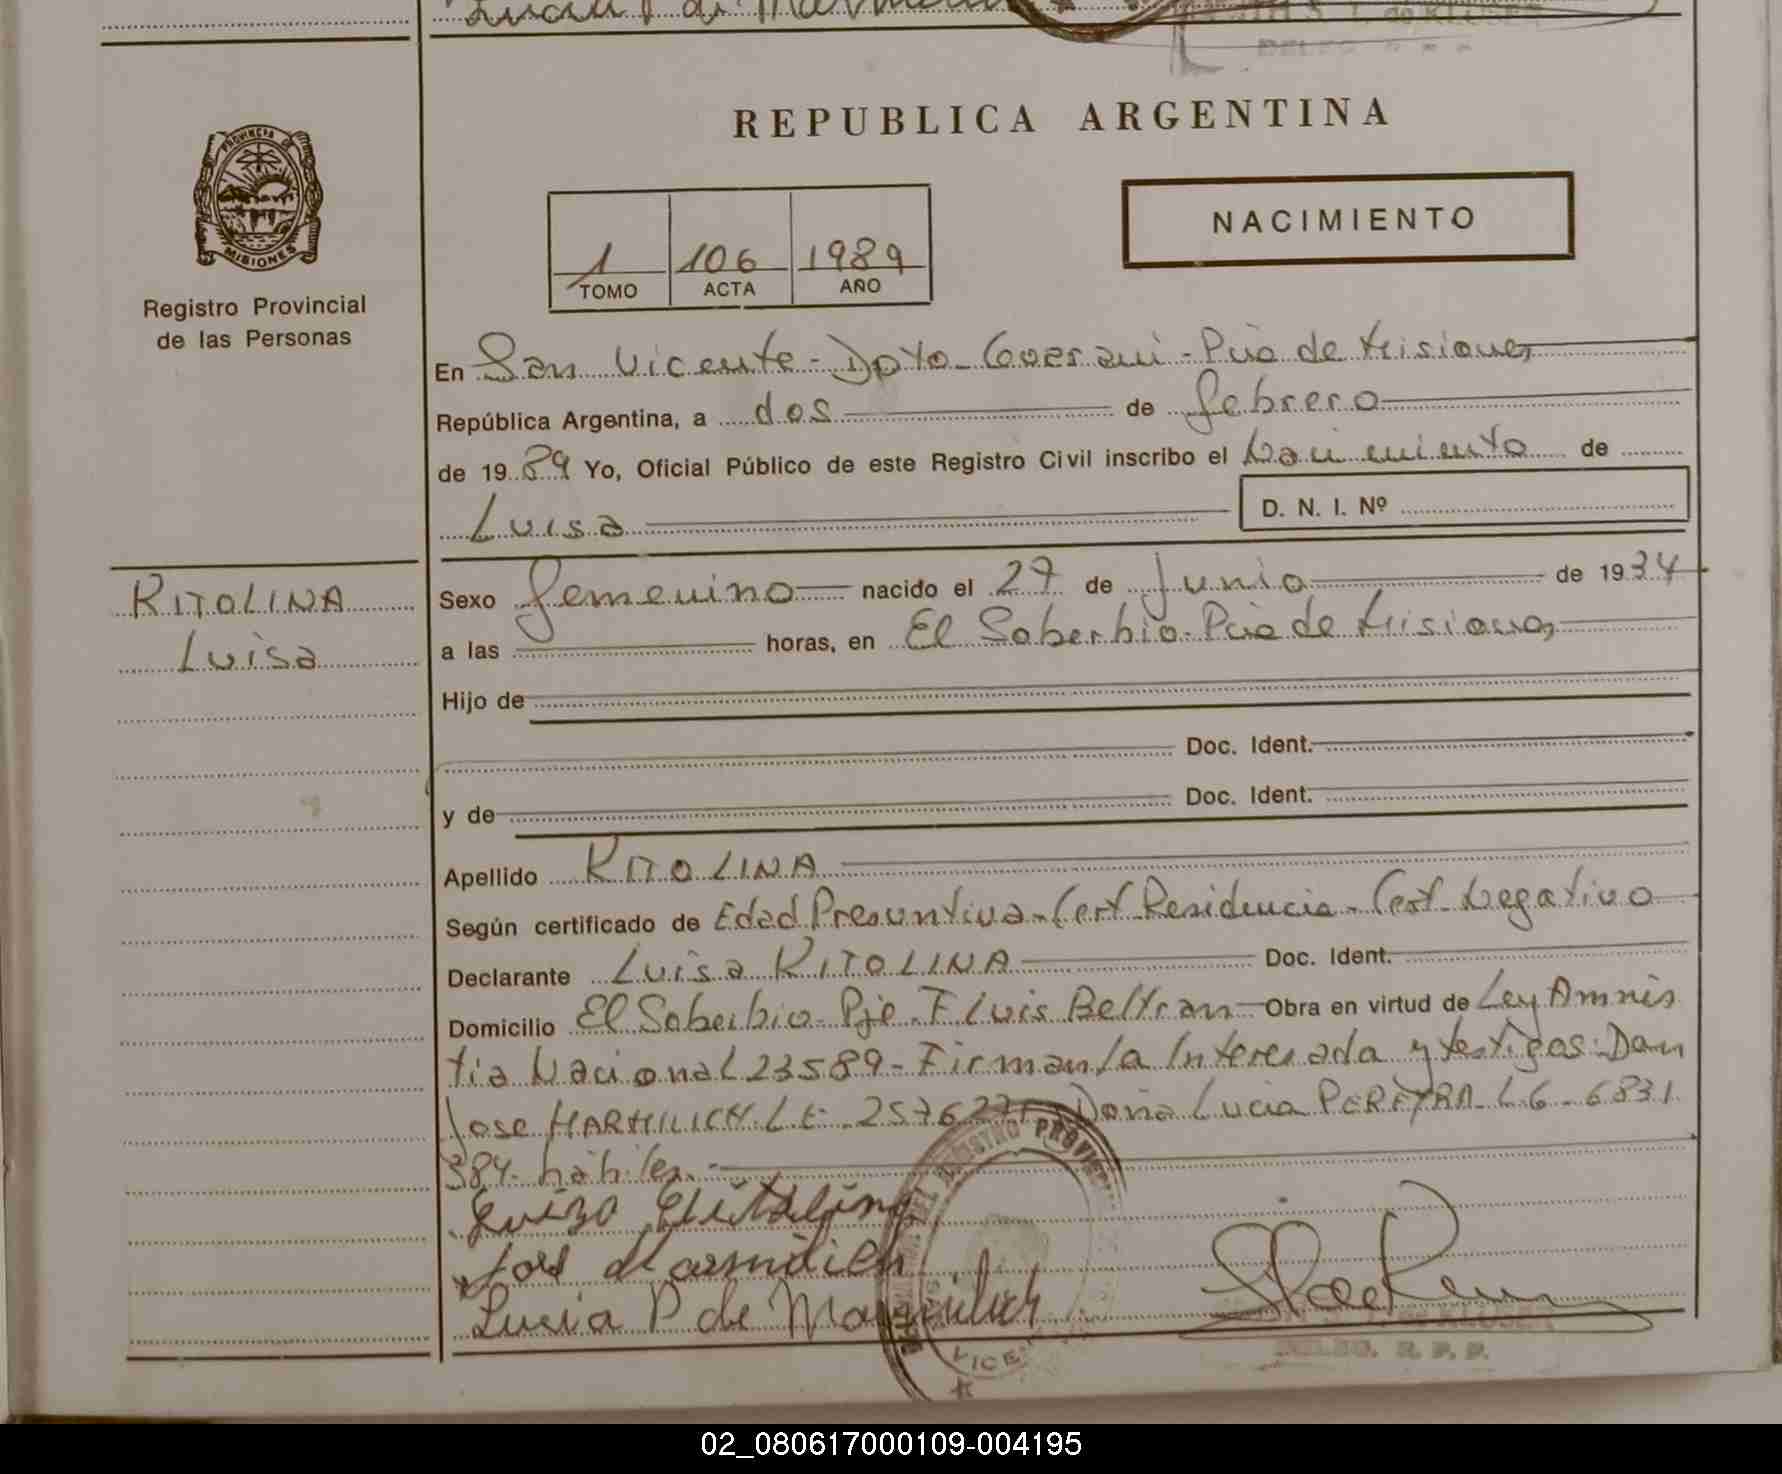 REPUBLICA ARGENTINA
PROVINCIA DE
MISIONES
Registro Provincial
de las Personas
NACIMIENTO
1 106 1989
TOMO ACTA AÑO
En San Vicente - Dpto. Guarani - Pcia de Misiones
República Argentina, a dos de febrero
de 19 89 Yo, Oficial Público de este Registro Civil inscribo el Nacimiento de
Luisa D. N. I. Nº
RITOLINA
Luisa
Sexo femenino nacido el 27 de Junio de 19 34
a las horas, en El Soberbio - Pcia de Misiones
Hijo de
Doc. Ident.
y de Doc. Ident.
Apellido RITOLINA
Según certificado de Edad Presuntiva - Cert. Residencia - Cert. Negativo
Declarante Luisa RITOLINA Doc. Ident.
Domicilio El Soberbio - Pje. F. Luis Beltran Obra en virtud de Ley Amnis
tia Nacional 23589 - Firman la Interesada y testigos: Don
Jose HARMILICH L.E. Doña Lucia PEREYRA L.C. 6831
384 - hábiles. -
Lucia P de
DEL REGISTRO PROVIN
VICEN
DELEG. R. P. P.
02_080617000109-004195